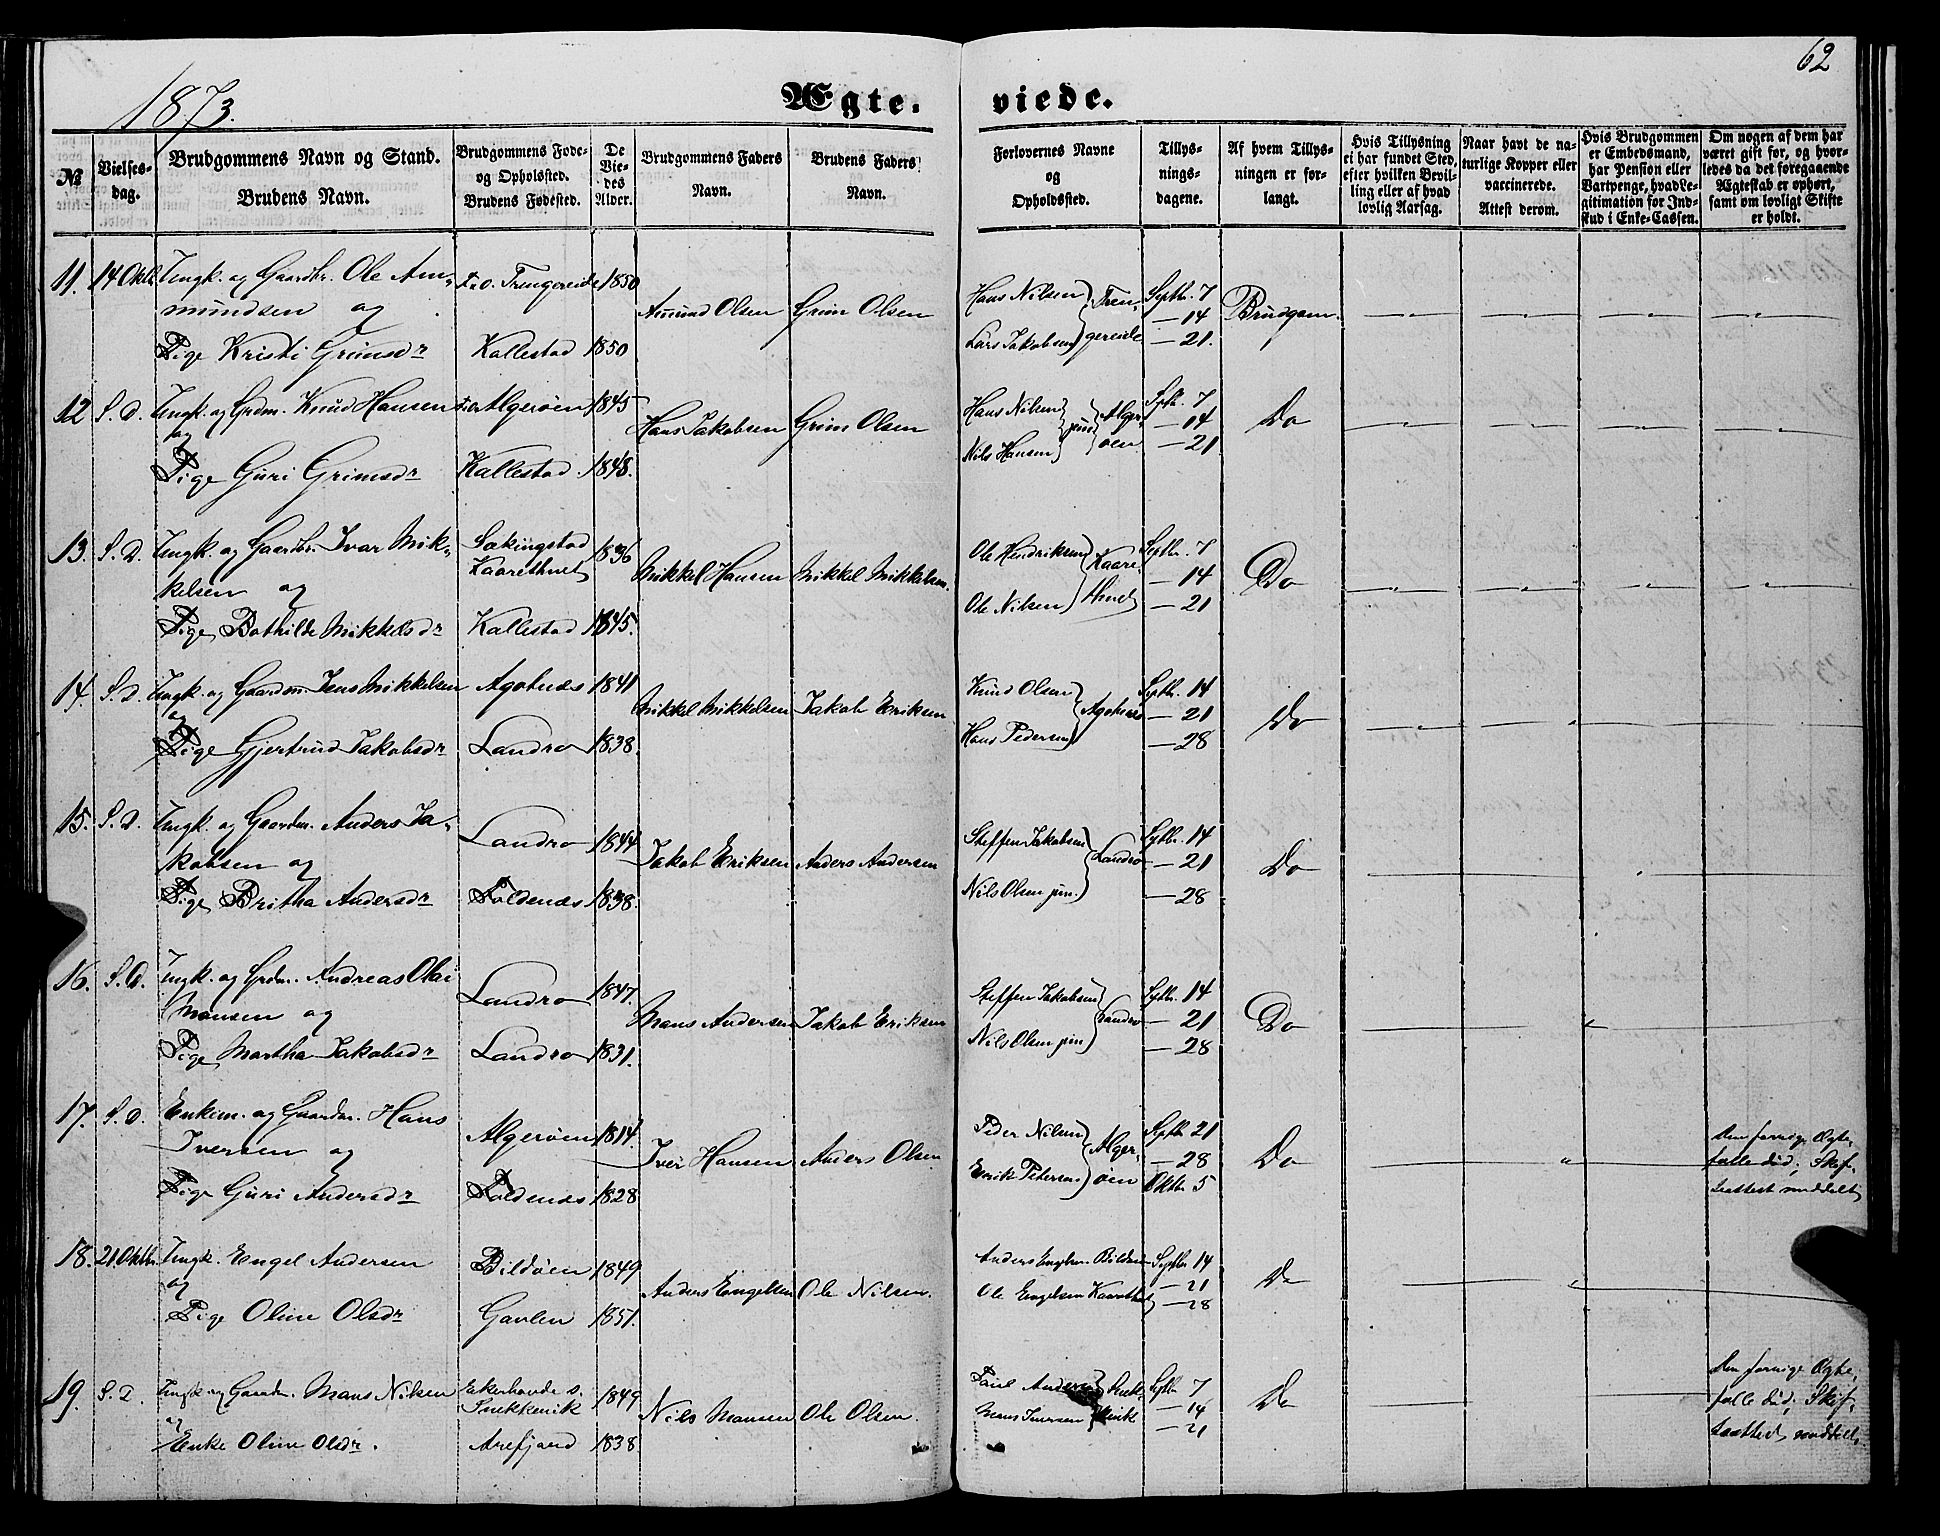 62
1873.
Ægte. viede.
№
Vielses-
dag.
Brudgommens Navn og Stand.
Brudens Navn.
Brudgommens Føde-
og Opholdsted.
Brudens Fødested.
De
Vie-
des
Alder.
Brudgommens Faders
Navn.
Brudens Faders
Navn.
Forlovernes Navne
og
Opholdssted.
Tillys-
nings-
dagene.
Af hvem Tillys-
ningen er for-
langt.
Hvis Tillysning
ei har fundet Sted,
efter hvilken Bevil-
ling eller af hvad
lovlig Aarsag.
Naar havt de na-
turlige Kopper eller
vaccinerede.
Attest derom.
Hvis Brudgommen
er Embedsmand,
har Pension eller
Vartpenge, hvad Le-
gitimation for Ind-
skud i Enke-Cassen.
Om nogen af dem har
været gift før, og hvor-
ledes da det foregaaende
Ægteskab er ophørt,
samt om lovligt Skifte
er holdt.
11. 14 Oktb. Ungk. og Gaardbr. Ole Am-
mundsen og
Pige Kristi Grimsdr
f. o. Trengereide 1850
Kallestad 1850
Amund Olsen Grim Olsen
Hans Nilsen
Lars Jakobsen
Tren-
gereide
Septbr. 7
— 14
— 21.
Brudgom.
12 S. D. Ungk. og Grdm. Knud Hansen
og
Pige Guri Grimsdr
Algerøen 1845
Kallestad 1848.
Hans Jakobsen Grim Olsen
Hans Nilsen
Nils Hansen
jun
Alger-
øen
Septb. 7
— 14
— 21
Do
13. S. D. Ungk. og Gaardbr. Ivar Mik-
kelsen og
Pige Bothilde Mikkelsdr
Sækingstad
Kaarethvet 1836
Kallestad 1845.
Mikkel Hansen Mikkel Mikkelsen.
Ole Hendriksen
Ole Nilsen
Kaare-
thvet
Septbr. 7
— 14
— 21
Do
14. S. D. Ungk. og Gaardm. Jens Mikkelsen
og
Pige Gjertrud Jakobsdr
Agotnæs 1841
Landro 1838.
Mikkel Mikkelsen Jakob Eriksen
Knud Olsen
Hans Pedersen
Agotnæs
Septb. 14
— 21
— 28
Do
15. S. D. Ungk. og Gaardm. Anders Ja-
kobsen og
Pige Britha Andersdr
Landro 1844
Foldenæs 1838.
Jakob Eriksen Anders Andersen
Steffen Jakobsen
Nils Olsen jun.
Landro
Septbr. 14
— 21
— 28
Do
16. S. D. Ungk. og Grdm. Andreas Olai
Monsen og
Pige Martha Jakobsdr
Landro 1847.
Landro 1831.
Mons Andersen Jakob Eriksen
Steffen Jakobsen
Nils Olsen jun
Landro
Septbr. 14
— 21
— 28
Do
17. S. D. Enkem. og Gaardm. Hans
Iversen og
Pige Guri Andersdr
Algerøen 1814.
Foldenæs 1828
Iver Hansen Anders Olsen
Peder Nilsen
Erik Petersen
Alger-
øen
Septbr 21
— 28
Oktbr. 5
Do
Den forrige Ægte-
falle død; Skif-
teattest meddelt
18. 21 Oktbr. Ungk. Engel Andersen
og
Pige Oline Olsdr
Bildøen 1849
Gavlen 1851.
Anders Engelsen Ole Nilsen.
Anders Engelsen Bildøen
Ole Engelsen
Septbr 14
— 21
— 28
Do
19. S. D. Ungk og Gaardm. Mons Nilsen
og
Enke Oline Olsdr.
Ekerhovde s.
Snekkevik 1849
Arefjord 1838
Nils Monsen Ole Olsen.
Poul Anders
Mons Iversen
Snek-
kevik
Septbr 7
— 14
— 21
Do
Den forrige Ægte-
falle død; Skif-
teattest meddelt.